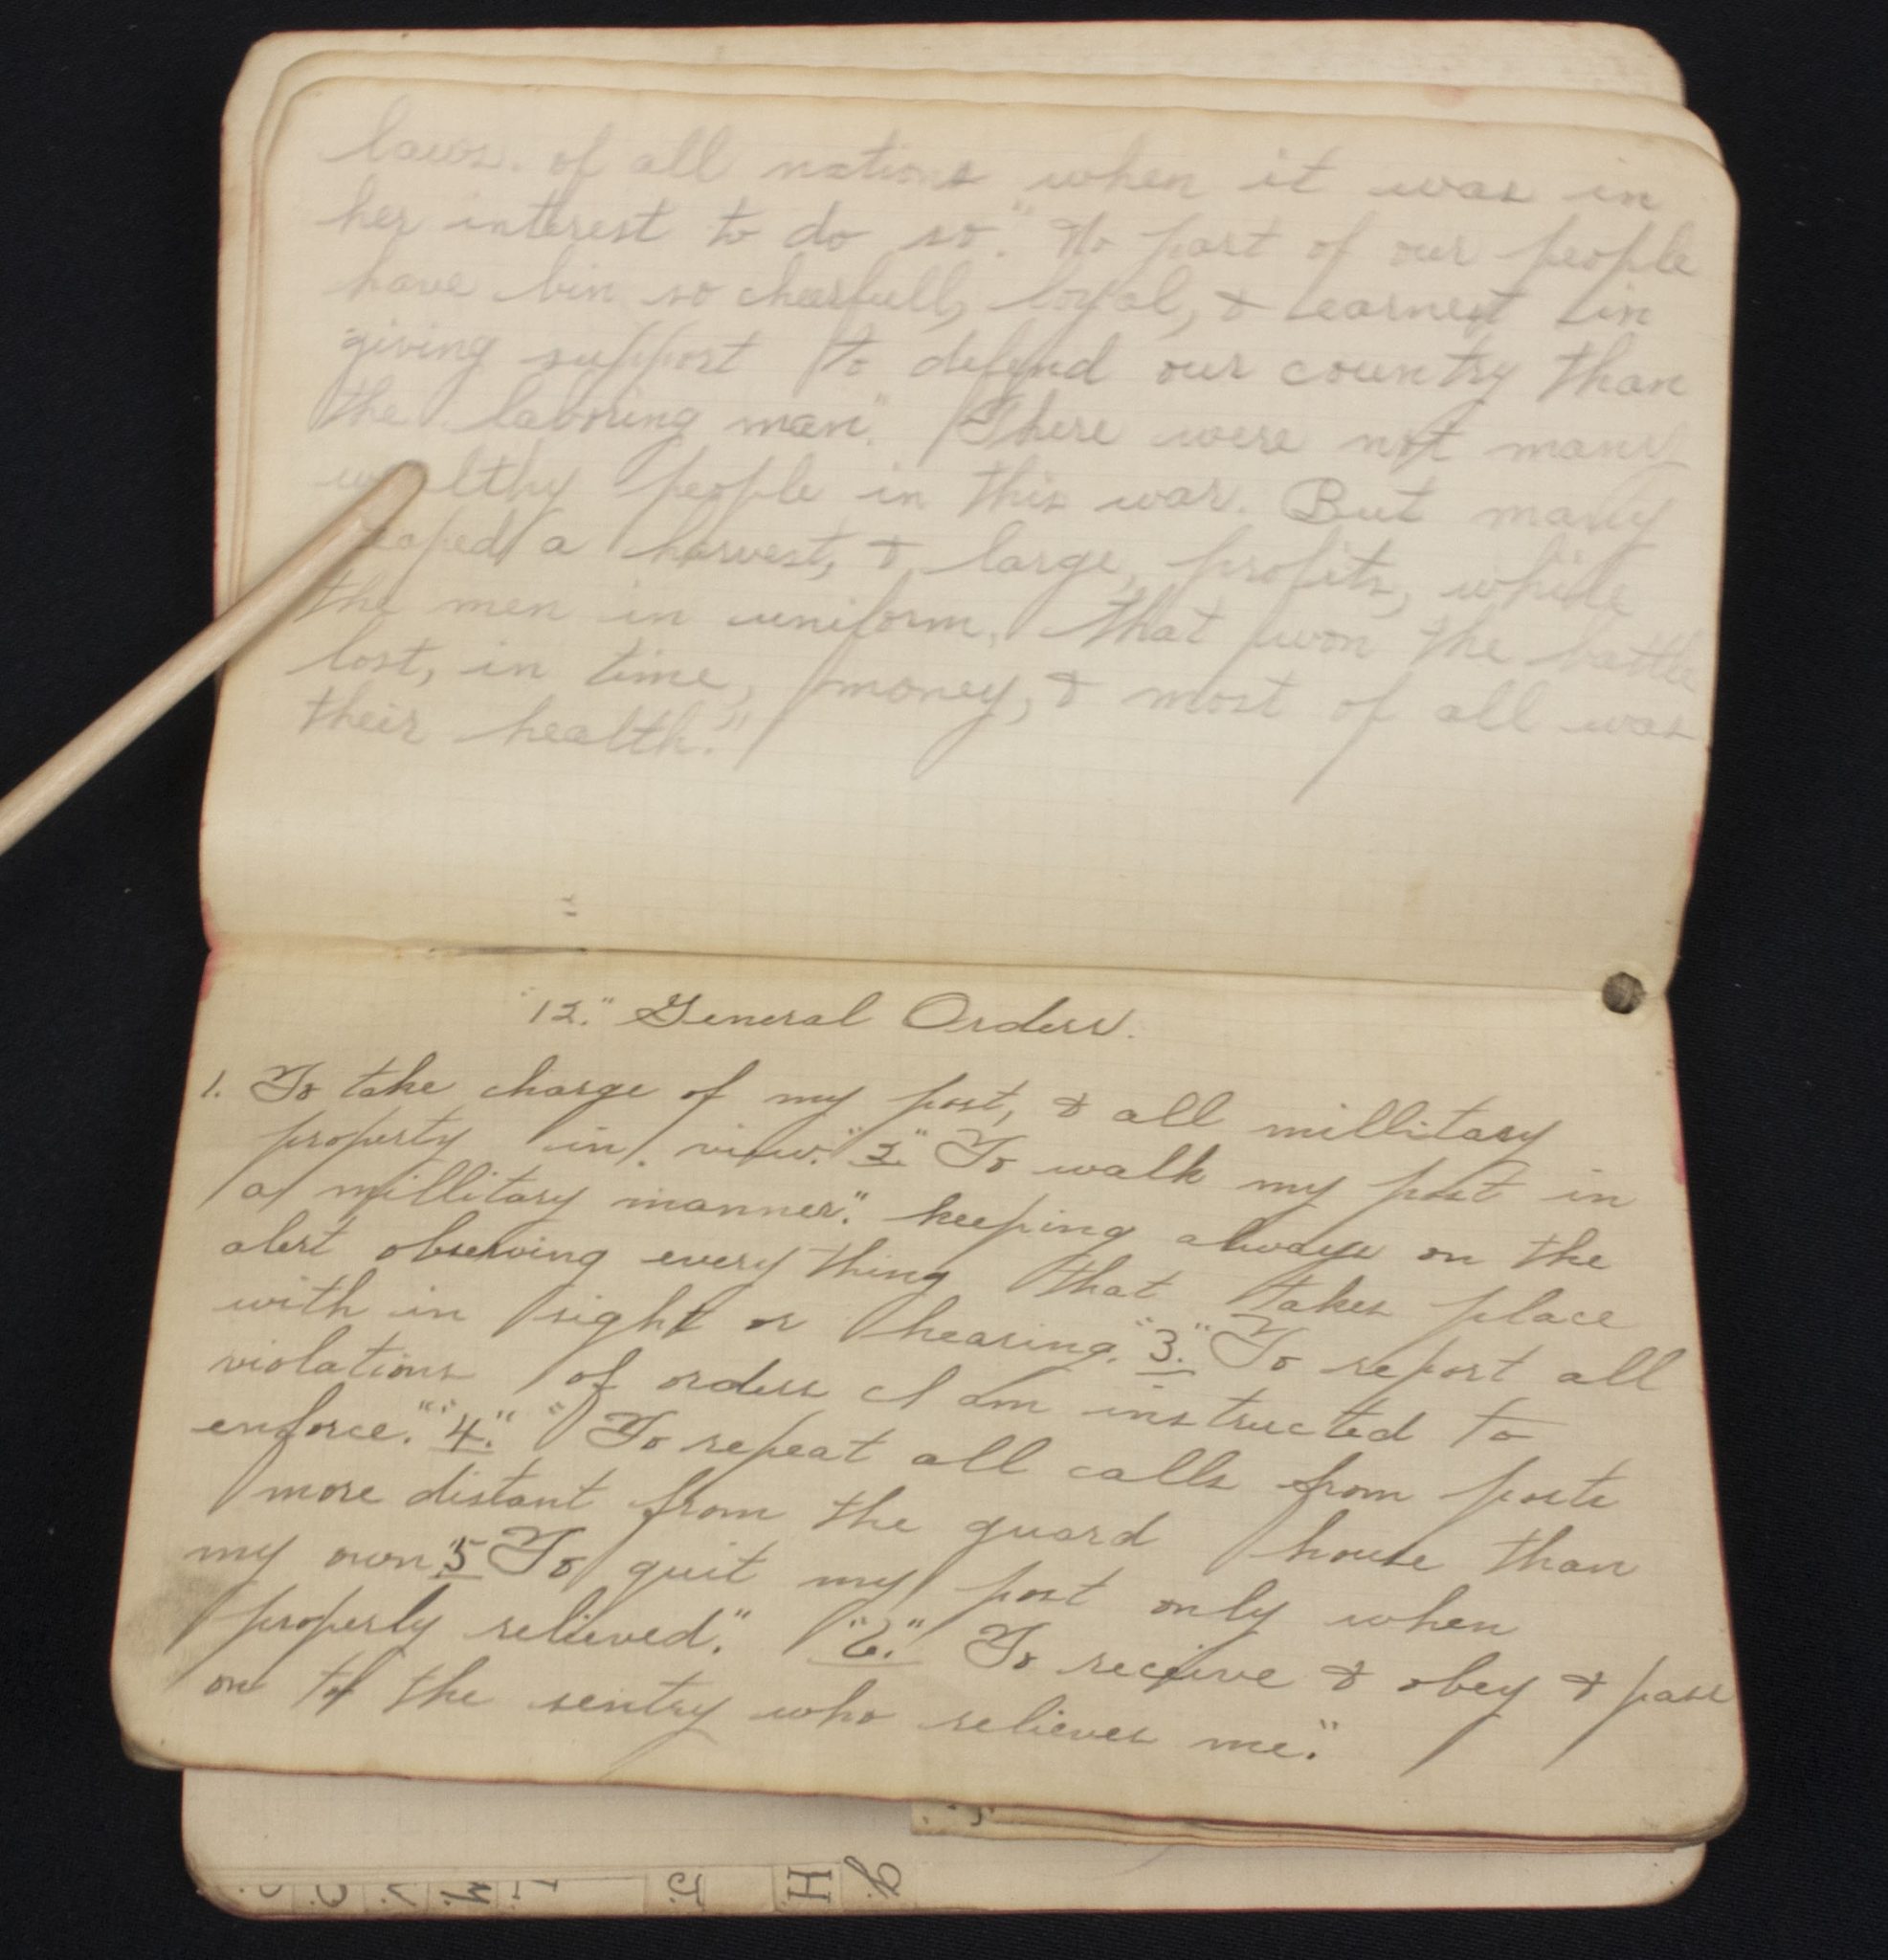 laws. of all nations when it was in
her interest to do so." No part of our people
have bin so cheerfull, loyal, & earnest in
giving support to defend our country than
the laboring man." There were not many
wealthy people in this war. But many
reaped a harvest, & large, profits, while
the men in uniform, that won the battle
lost, in time, money, & most of all was
their health."
"12." General Orders.
1. To take charge of my post, & all millitary
property in view." "2." To walk my post in
a millitary manner." keeping always on the
alert observing every thing that takes place
with in sight or hearing." "3." To report all
violations of orders I am instructed to
enforce." "4." "To repeat all calls from posts
more distant from the guard house than
my own "5 To quit my post only when
properly relieved." "6." To receive & obey & pass
on to the sentry who relieves me."
M.
J.
H
G.